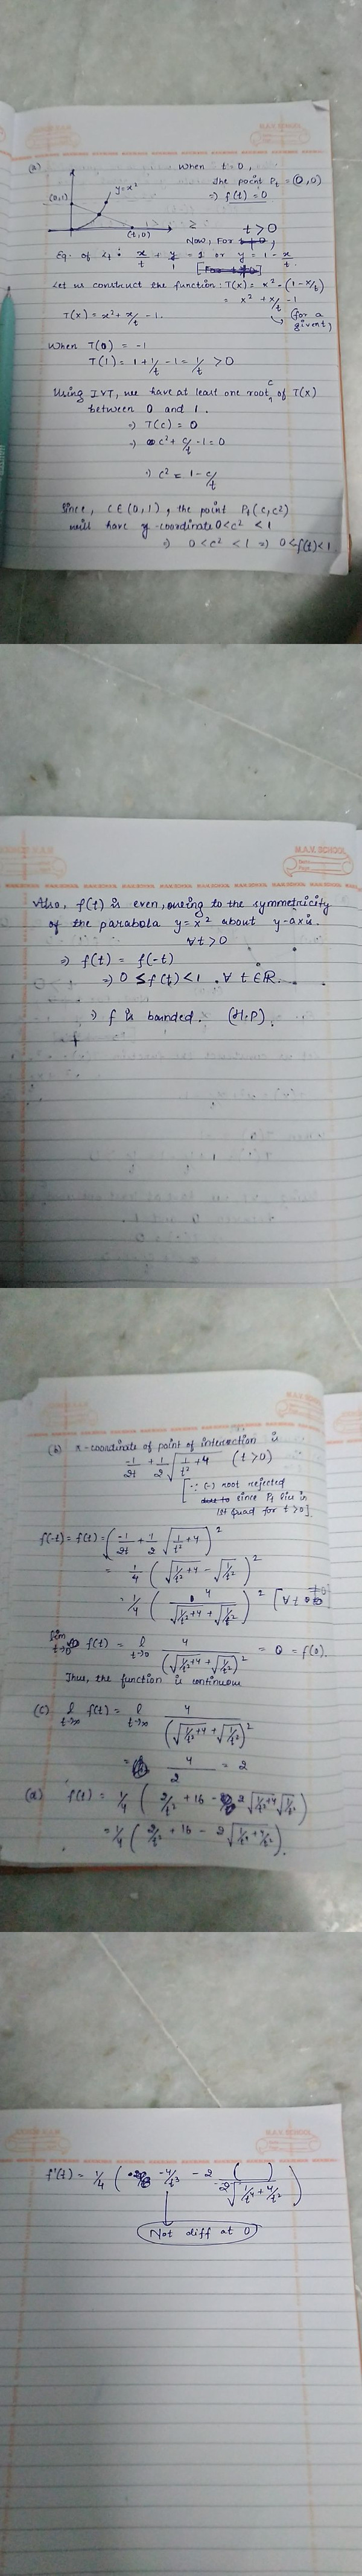 (a)
When t = 0,
The point Pt = (0,0)
⇒ f(t) = 0
(0,1)
y = x²
(t,0)
t > 0
Now, For
Eq. of Lt : x/t + y/1 = 1 or y = 1 - x/t.
Let us construct the function : T(x) = x² - (1 - x/t)
= x² + x/t - 1
T(x) = x² + x/t - 1.
(for a given t)
When T(0) = -1
T(1) = 1 + 1/t - 1 = 1/t > 0
Using IVT, we have at least one root c of T(x)
between 0 and 1.
⇒ T(c) = 0
⇒ c² + c/t - 1 = 0
⇒ c² = 1 - c/t
Since, c ∈ (0,1), the point Pt (c, c²)
will have y-coordinate 0 < c² < 1
⇒ 0 < c² < 1 ⇒ 0 < f(t) < 1
Also, f(t) is even, owing to the symmetricity
of the parabola y = x² about y-axis.
∀ t > 0
⇒ f(t) = f(-t)
⇒ 0 ≤ f(t) < 1 . ∀ t ∈ R.
⇒ f is bounded. (H.P).
(b) x-coordinate of point of intersection is
-1/2t + 1/2 √(1/t² + 4) (t > 0)
[∵ (-) root rejected
since Pt lies in
1st Quad for t > 0]
f(-t) = f(t) = (-1/2t + 1/2 √(1/t² + 4))²
= 1/4 (√(1/t² + 4) - √(1/t²))²
= 1/4 (4 / (√(1/t² + 4) + √(1/t²)))²
lim t→0 f(t) = l t→0 4 / (√(1/t² + 4) + √(1/t²))² = 0 = f(0).
Thus, the function is continuous
(c) l t→∞ f(t) = l t→∞ 4 / (√(1/t² + 4) + √(1/t²))²
= 4/2 = 2
(d) f(t) = 1/4 (2/t² + 16 - 2 √(1/t² + 4) √(1/t²))
= 1/4 (2/t² + 16 - 2 √(1/t⁴ + 4/t²)).
f'(t) = 1/4 (-4/t³ - 2 ( ) / 2√(1/t⁴ + 4/t²))
Not diff at 0